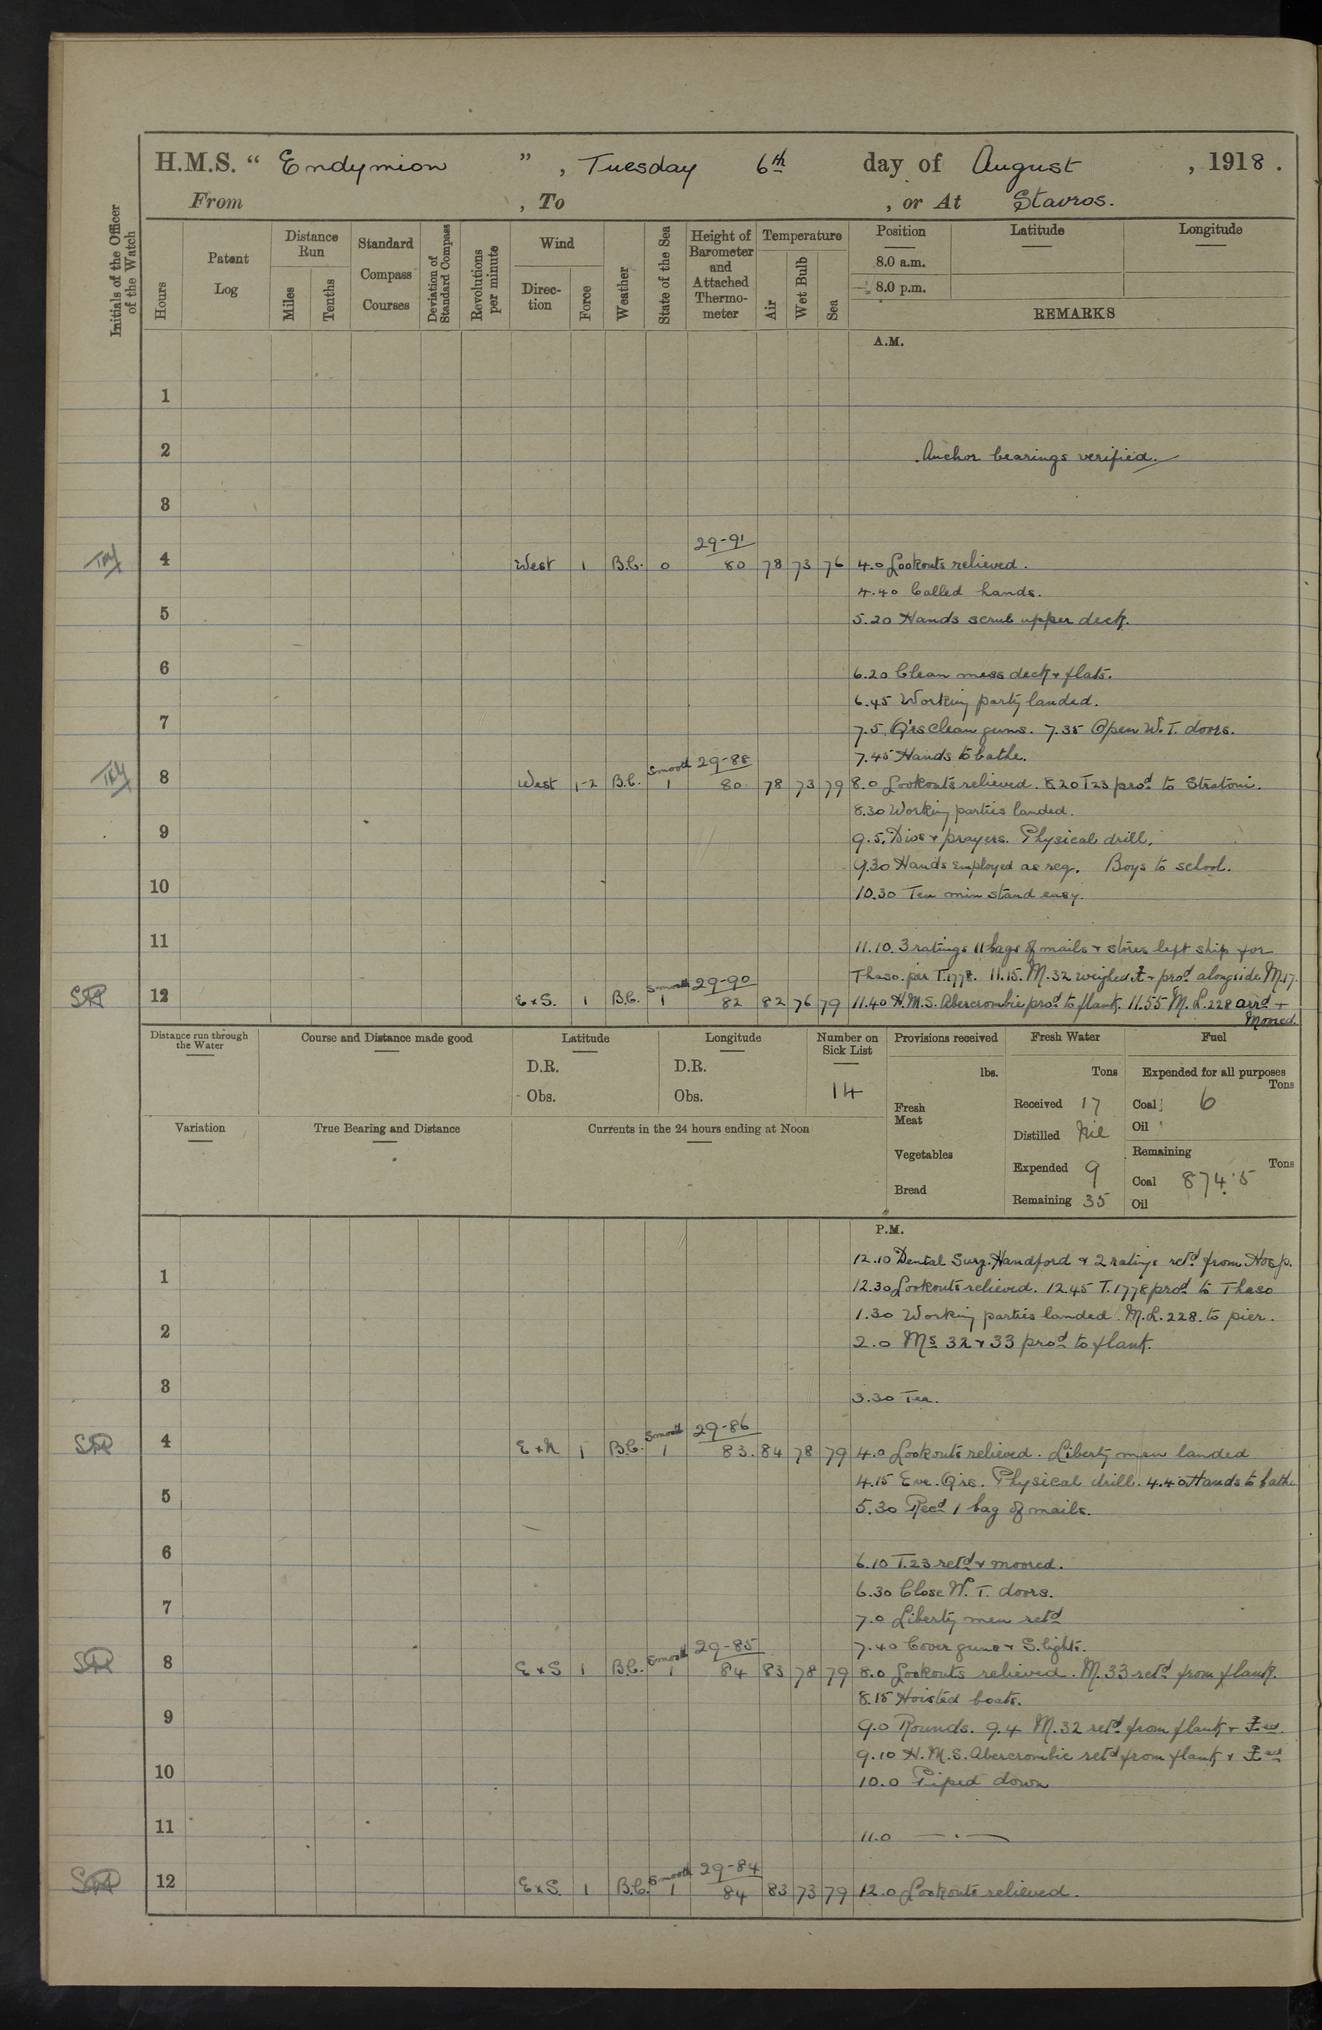 H.M.S. " Endymion ", Tuesday 6th day of August, 1918.
From , To , or At Stavros.
Initials of the Officer of the Watch
Hours
Patent Log
Distance Run
Miles
Tenths
Standard Compass Courses
Deviation of Standard Compass
Revolutions per minute
Wind
Direction
Force
Weather
State of the Sea
Height of Barometer and Attached Thermometer
Temperature
Air
Wet Bulb
Sea
Position
Latitude
Longitude
8.0 a.m.
8.0 p.m.
REMARKS
A.M.
1
2 Anchor bearings verified.
3
29-91
4 West 1 B.C. 0 80 78 73 76 4.0 Lookouts relieved.
4.40 Called hands.
5 5.20 Hands scrub upper deck.
6 6.20 Clean mess deck & flats.
6.45 Working party landed.
7 7.5 Q'rs clean guns. 7.35 Open W.T. doors.
Smooth 29-88 7.45 Hands to bathe.
8 West 1-2 B.C. 1 80 78 73 79 8.0 Lookouts relieved. 8.20 T23 pro'd to Stratoni.
8.30 Working parties landed.
9 9.5. Divs & prayers. Physical drill.
9.30 Hands employed as req. Boys to school.
10 10.30 Ten min stand easy.
11 11.10. 3 ratings 11 bags of mails & stores left ship for
Smooth 29-90 Thaso. per T.1778. 11.15. M.32 weighed & pro'd alongside M.17.
12 E x S. 1 B.C. 1 82 82 76 79 11.40 H.M.S. Abercrombie pro'd to flank. 11.55 M.L.228 arr'd +
Moored.
Distance run through the Water
Course and Distance made good
Latitude
D.R.
Obs.
Longitude
D.R.
Obs.
Number on Sick List
14
Provisions received
lbs.
Fresh Meat
Vegetables
Bread
Fresh Water
Tons
Received 17
Distilled Nil
Expended 9
Remaining 35
Fuel
Expended for all purposes
Tons
Coal 6
Oil
Remaining
Tons
Coal 874.5
Oil
Variation
True Bearing and Distance
Currents in the 24 hours ending at Noon
P.M.
12.10 Dental Surg. Handford & 2 ratings ret'd from Hosp.
1 12.30 Lookouts relieved. 12.45 T.1778 pro'd to Thaso
1.30 Working parties landed. M.L.228. to pier.
2 2.0 Ms 32 & 33 pro'd to flank.
3 3.30 Tea.
Smooth 29-86
4 E x N 1 B.C. 1 83. 84 78 79 4.0 Lookouts relieved. Liberty men landed
4.15 Eve. Q'rs. Physical drill. 4.40 Hands to bathe
5 5.30 Rec'd 1 bag of mails.
6 6.10 T.23 ret'd & moored.
6.30 Close W.T. doors.
7 7.0 Liberty men ret'd
Smooth 29-85 7.40 Cover guns & S.lights.
8 E x S 1 B.C. 1 84 83 78 79 8.0 Lookouts relieved. M.33 ret'd from flank.
8.15 Hoisted boats.
9 9.0 Rounds. 9.4 M.32 ret'd from flank &
9.10 H.M.S. Abercrombie ret'd from flank &
10 10.0 Piped down
11 11.0 — . —
Smooth 29-84
12 E x S. 1 B.C. 1 84 83 73 79 12.0 Lookouts relieved.